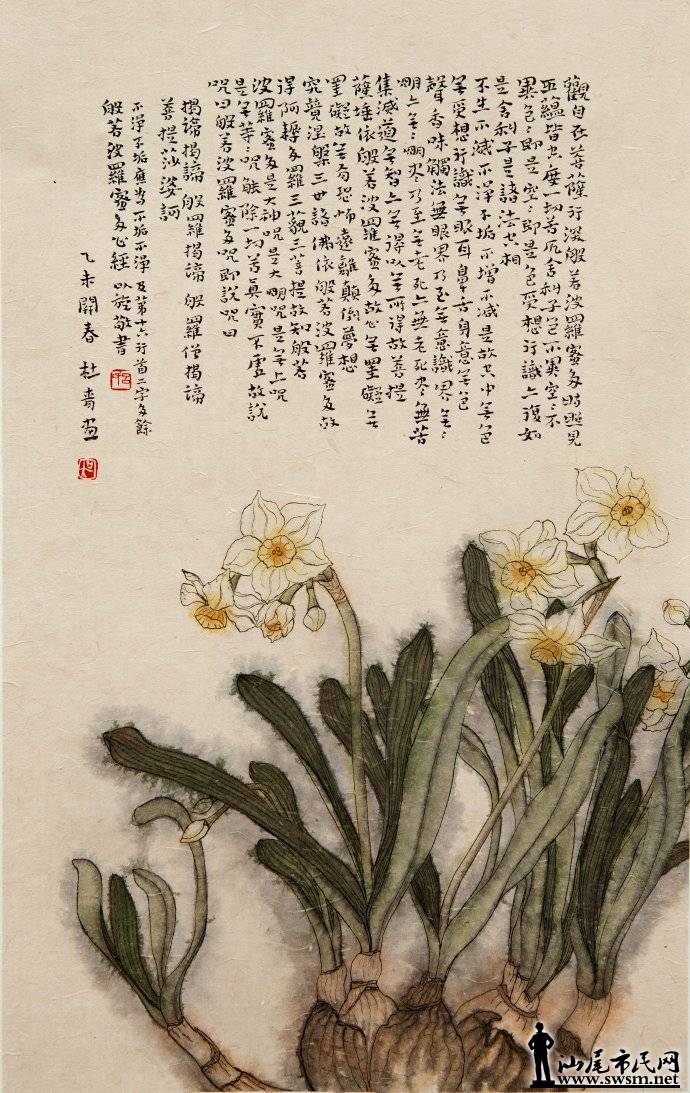 觀自在菩薩行深般若波羅蜜多時照見
五蘊皆空度一切苦厄舍利子色不異空空不
異色色即是空空即是色受想行識亦復如
是舍利子是諸法空相
不生不滅不淨不垢不增不減是故空中無色
無受想行識無眼耳鼻舌身意無色
聲香味觸法無眼界乃至無意識界無無
明亦無無明盡乃至無老死亦無老死盡無苦
集滅道無智亦無得以無所得故菩提
薩埵依般若波羅蜜多故心無罣礙無
罣礙故無有恐怖遠離顛倒夢想
究竟涅槃三世諸佛依般若波羅蜜多故
得阿耨多羅三藐三菩提故知般若
波羅蜜多是大神咒是大明咒是無上咒
是無等等咒能除一切苦真實不虛故說
咒曰般若波羅蜜多咒即說咒曰
揭諦揭諦 般羅揭諦 般羅僧揭諦
菩提莎婆訶
不淨不垢應為不垢不淨及第十六行首二字多餘
般若波羅蜜多心經 以旋敬書
乙未開春 杜青画
汕尾市民网
www.swsm.net